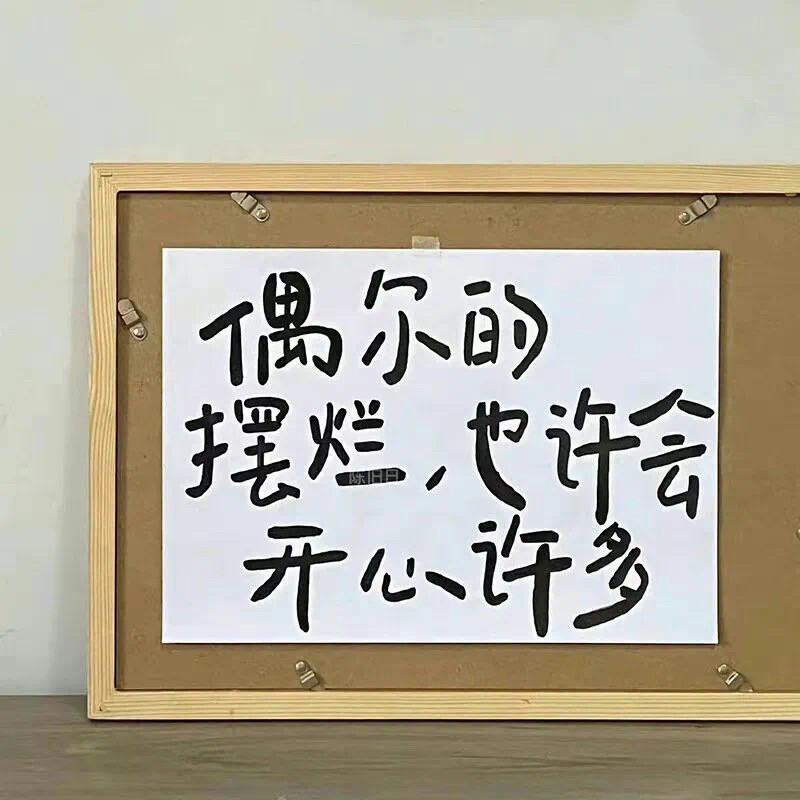 偶尔的
摆烂,也许会
开心许多
陈旧月